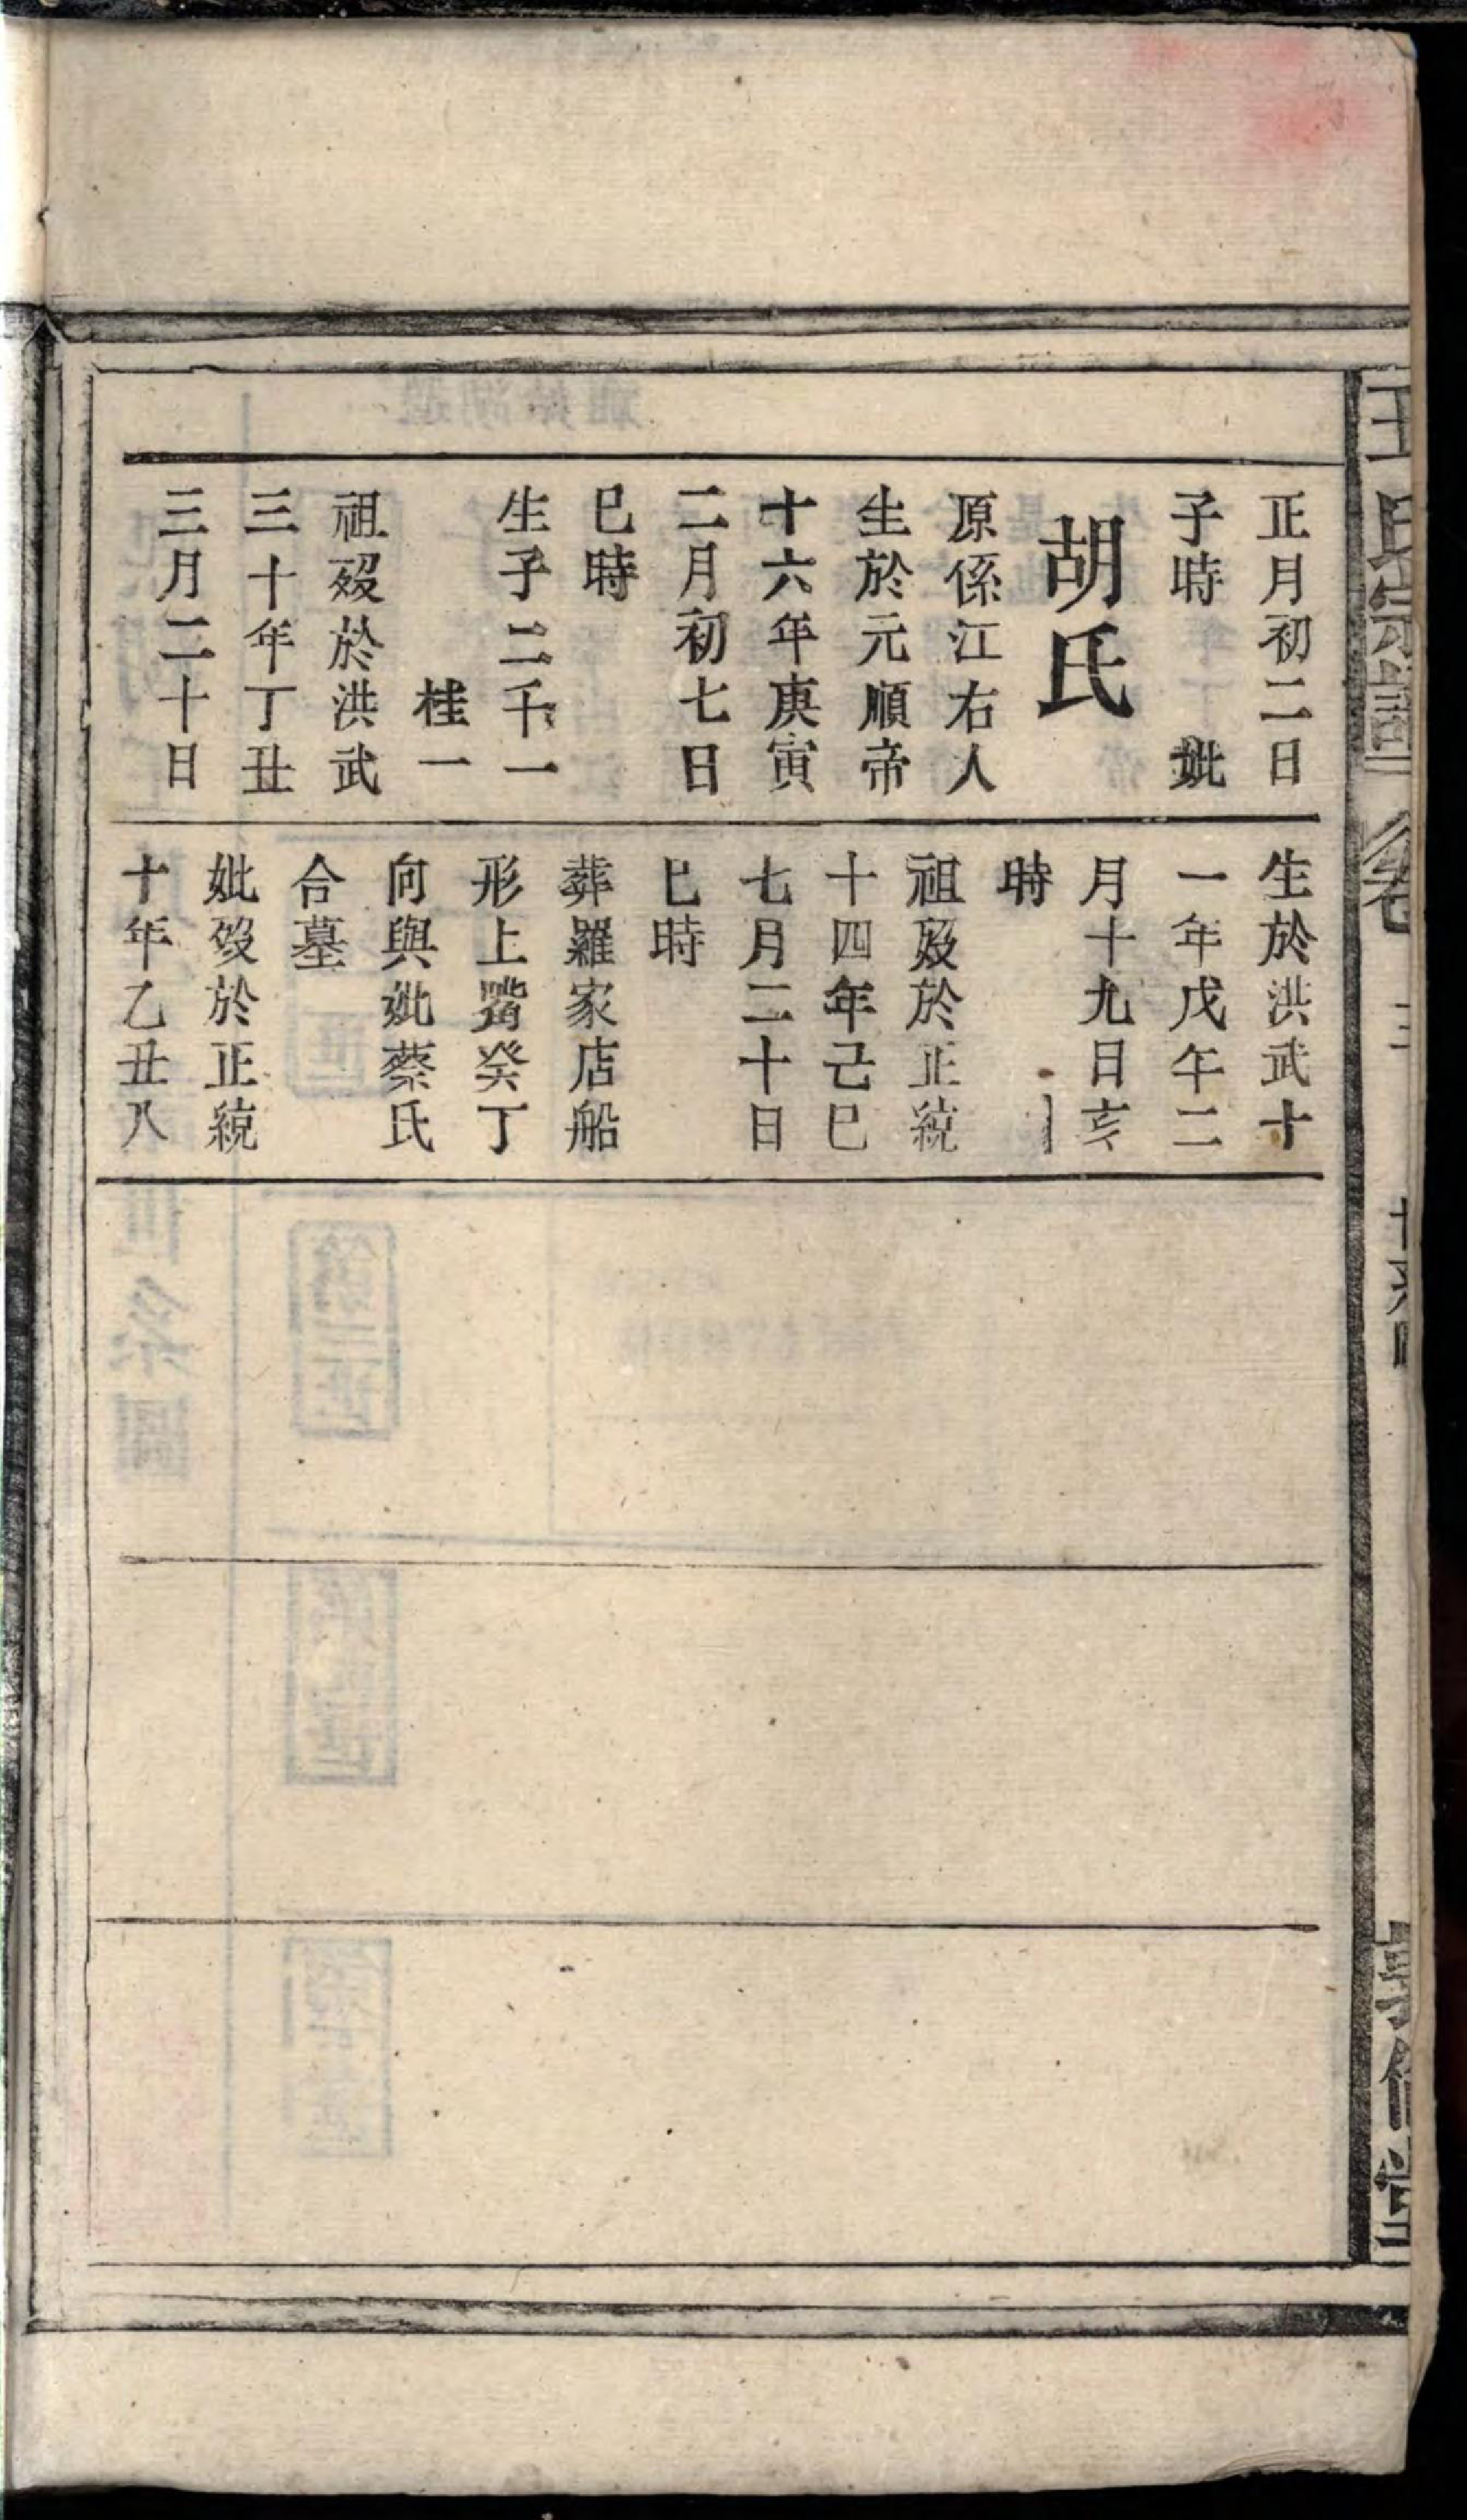 正月初二日
子時 妣
胡氏
原係江右人
生於元順帝
十六年庚寅
二月初七日
巳時
生子二千一
桂一
祖歿於洪武
三十年丁丑
三月二十日
生於洪武十
一年戊午二
月十九日亥
時
祖歿於正統
十四年己巳
七月二十日
巳時
葬羅家店船
形上嘴癸丁
向與妣蔡氏
合墓
妣歿於正統
十年乙丑八